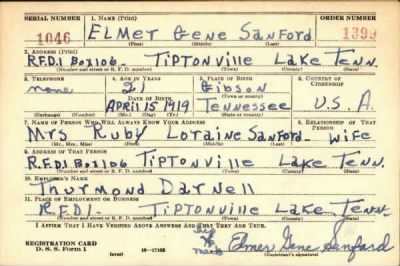 SERIAL NUMBER 1. NAME (Print) ORDER NUMBER
1046 ELMER GENE SANFORD 1399
(First) (Middle) (Last)
2. ADDRESS (Print)
R.F.D.1 BOX106. TIPTONVILLE LAKE TENN.
(Number and street or R. F. D. number) (Town) (County) (State)
3. TELEPHONE 4. AGE IN YEARS 5. PLACE OF BIRTH 6. COUNTRY OF CITIZENSHIP
none 21 Gibson
DATE OF BIRTH (Town or county)
APRIL 15 1919 Tennessee U.S.A.
(Exchange) (Number) (Mo.) (Day) (Yr.) (State or country)
7. NAME OF PERSON WHO WILL ALWAYS KNOW YOUR ADDRESS 8. RELATIONSHIP OF THAT PERSON
Mrs Ruby Loraine Sanford. Wife
(Mr., Mrs., Miss) (First) (Middle) (Last)
9. ADDRESS OF THAT PERSON
R.F.D1 Box106 TIPTONVILLE LAKE TENN.
(Number and street or R. F. D. number) (Town) (County) (State)
10. EMPLOYER'S NAME
Thurmond Darnell
11. PLACE OF EMPLOYMENT OR BUSINESS
R.F.D1. TIPTONVILLE LAKE TENN.
(Number and street or R. F. D. number) (Town) (County) (State)
I AFFIRM THAT I HAVE VERIFIED ABOVE ANSWERS AND THAT THEY ARE TRUE.
REGISTRATION CARD
D. S. S. Form 1 (over) his X mark Elmer Gene Sanford